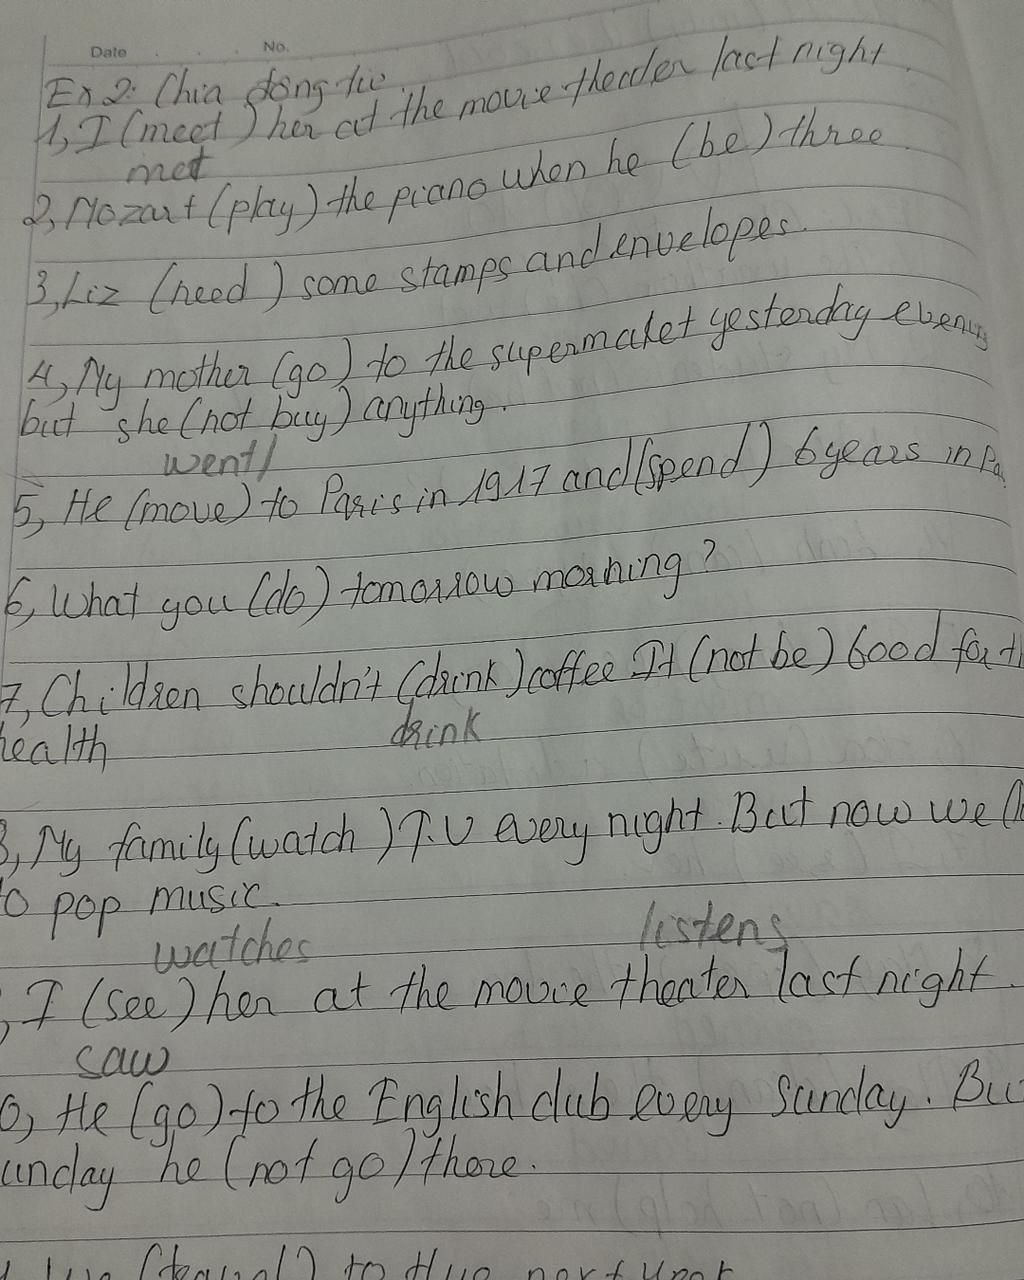 Date No.
Ex 2: Chia động từ
1, I (meet) her at the movie theader last night.
met
2, Mozart (play) the piano when he (be) three
3, Liz (need) some stamps and envelopes.
4, My mother (go) to the supermaket yesterday evening
but she (not buy) anything.
went
5, He (move) to Paris in 1917 and (spend) 6 years in Pa
6, What you (do) tomorrow morning?
7, Children shouldn't (drink) coffee It (not be) Good for th
health drink
8, My family (watch) T.V every night. But now we (l
to pop music.
watches listens
, I (see) her at the movie theater last night.
saw
0, He (go) to the English club every Sunday. Bu
unday he (not go) there.
(travel) to Hue next year